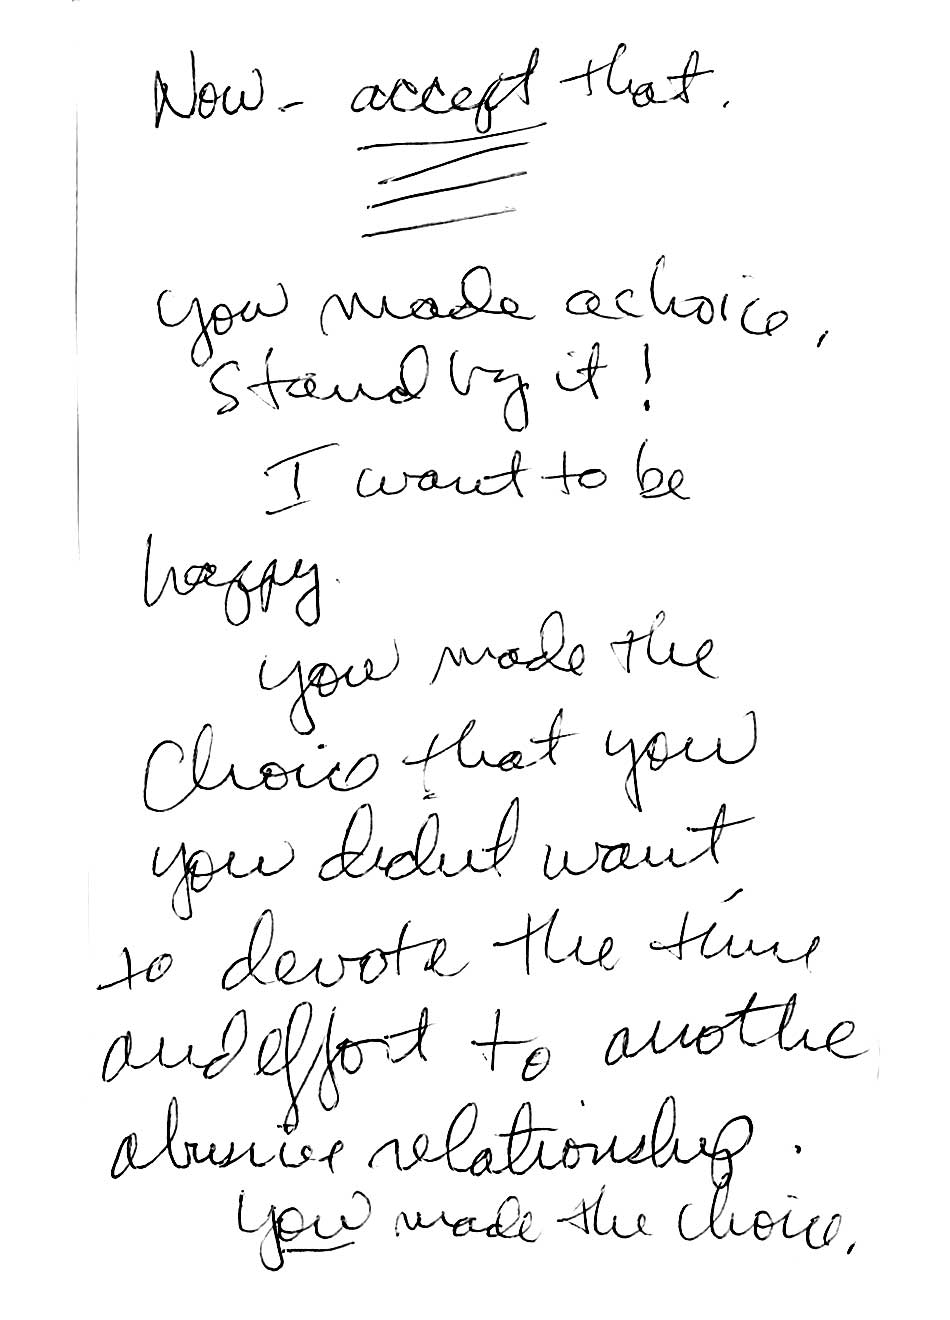 Now - accept that.
you made a choice,
stand by it!
I want to be
happy.
you made the
Choice that you
you didn't want
to devote the time
and effort to anothe
abusive relationship.
You made the choice.